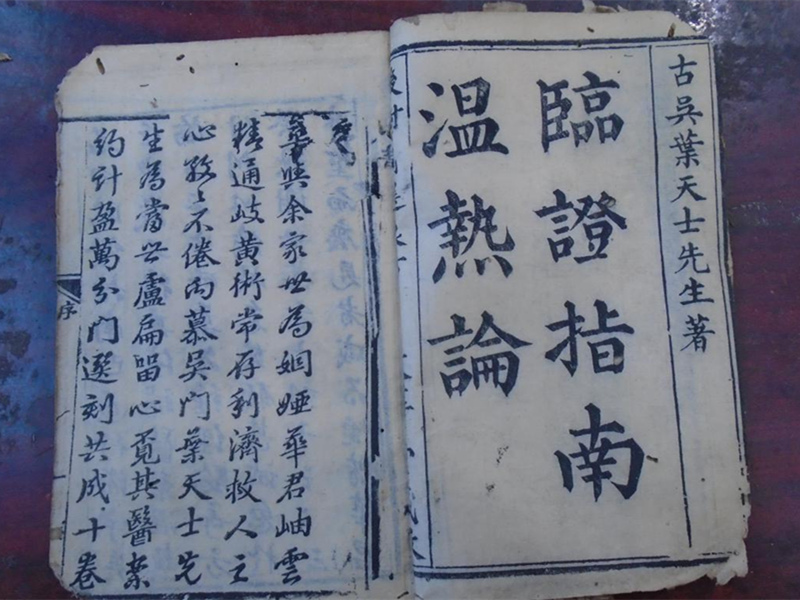 古吳葉天士先生著
臨證指南
溫熱論
華與余家世為姻婭華君岫雲
精通岐黃術常存利濟救人之
心孜々不倦向慕吳門葉天士先
生為當世盧扁留心覓其醫案
約計盈萬分門選刻共成十卷
序